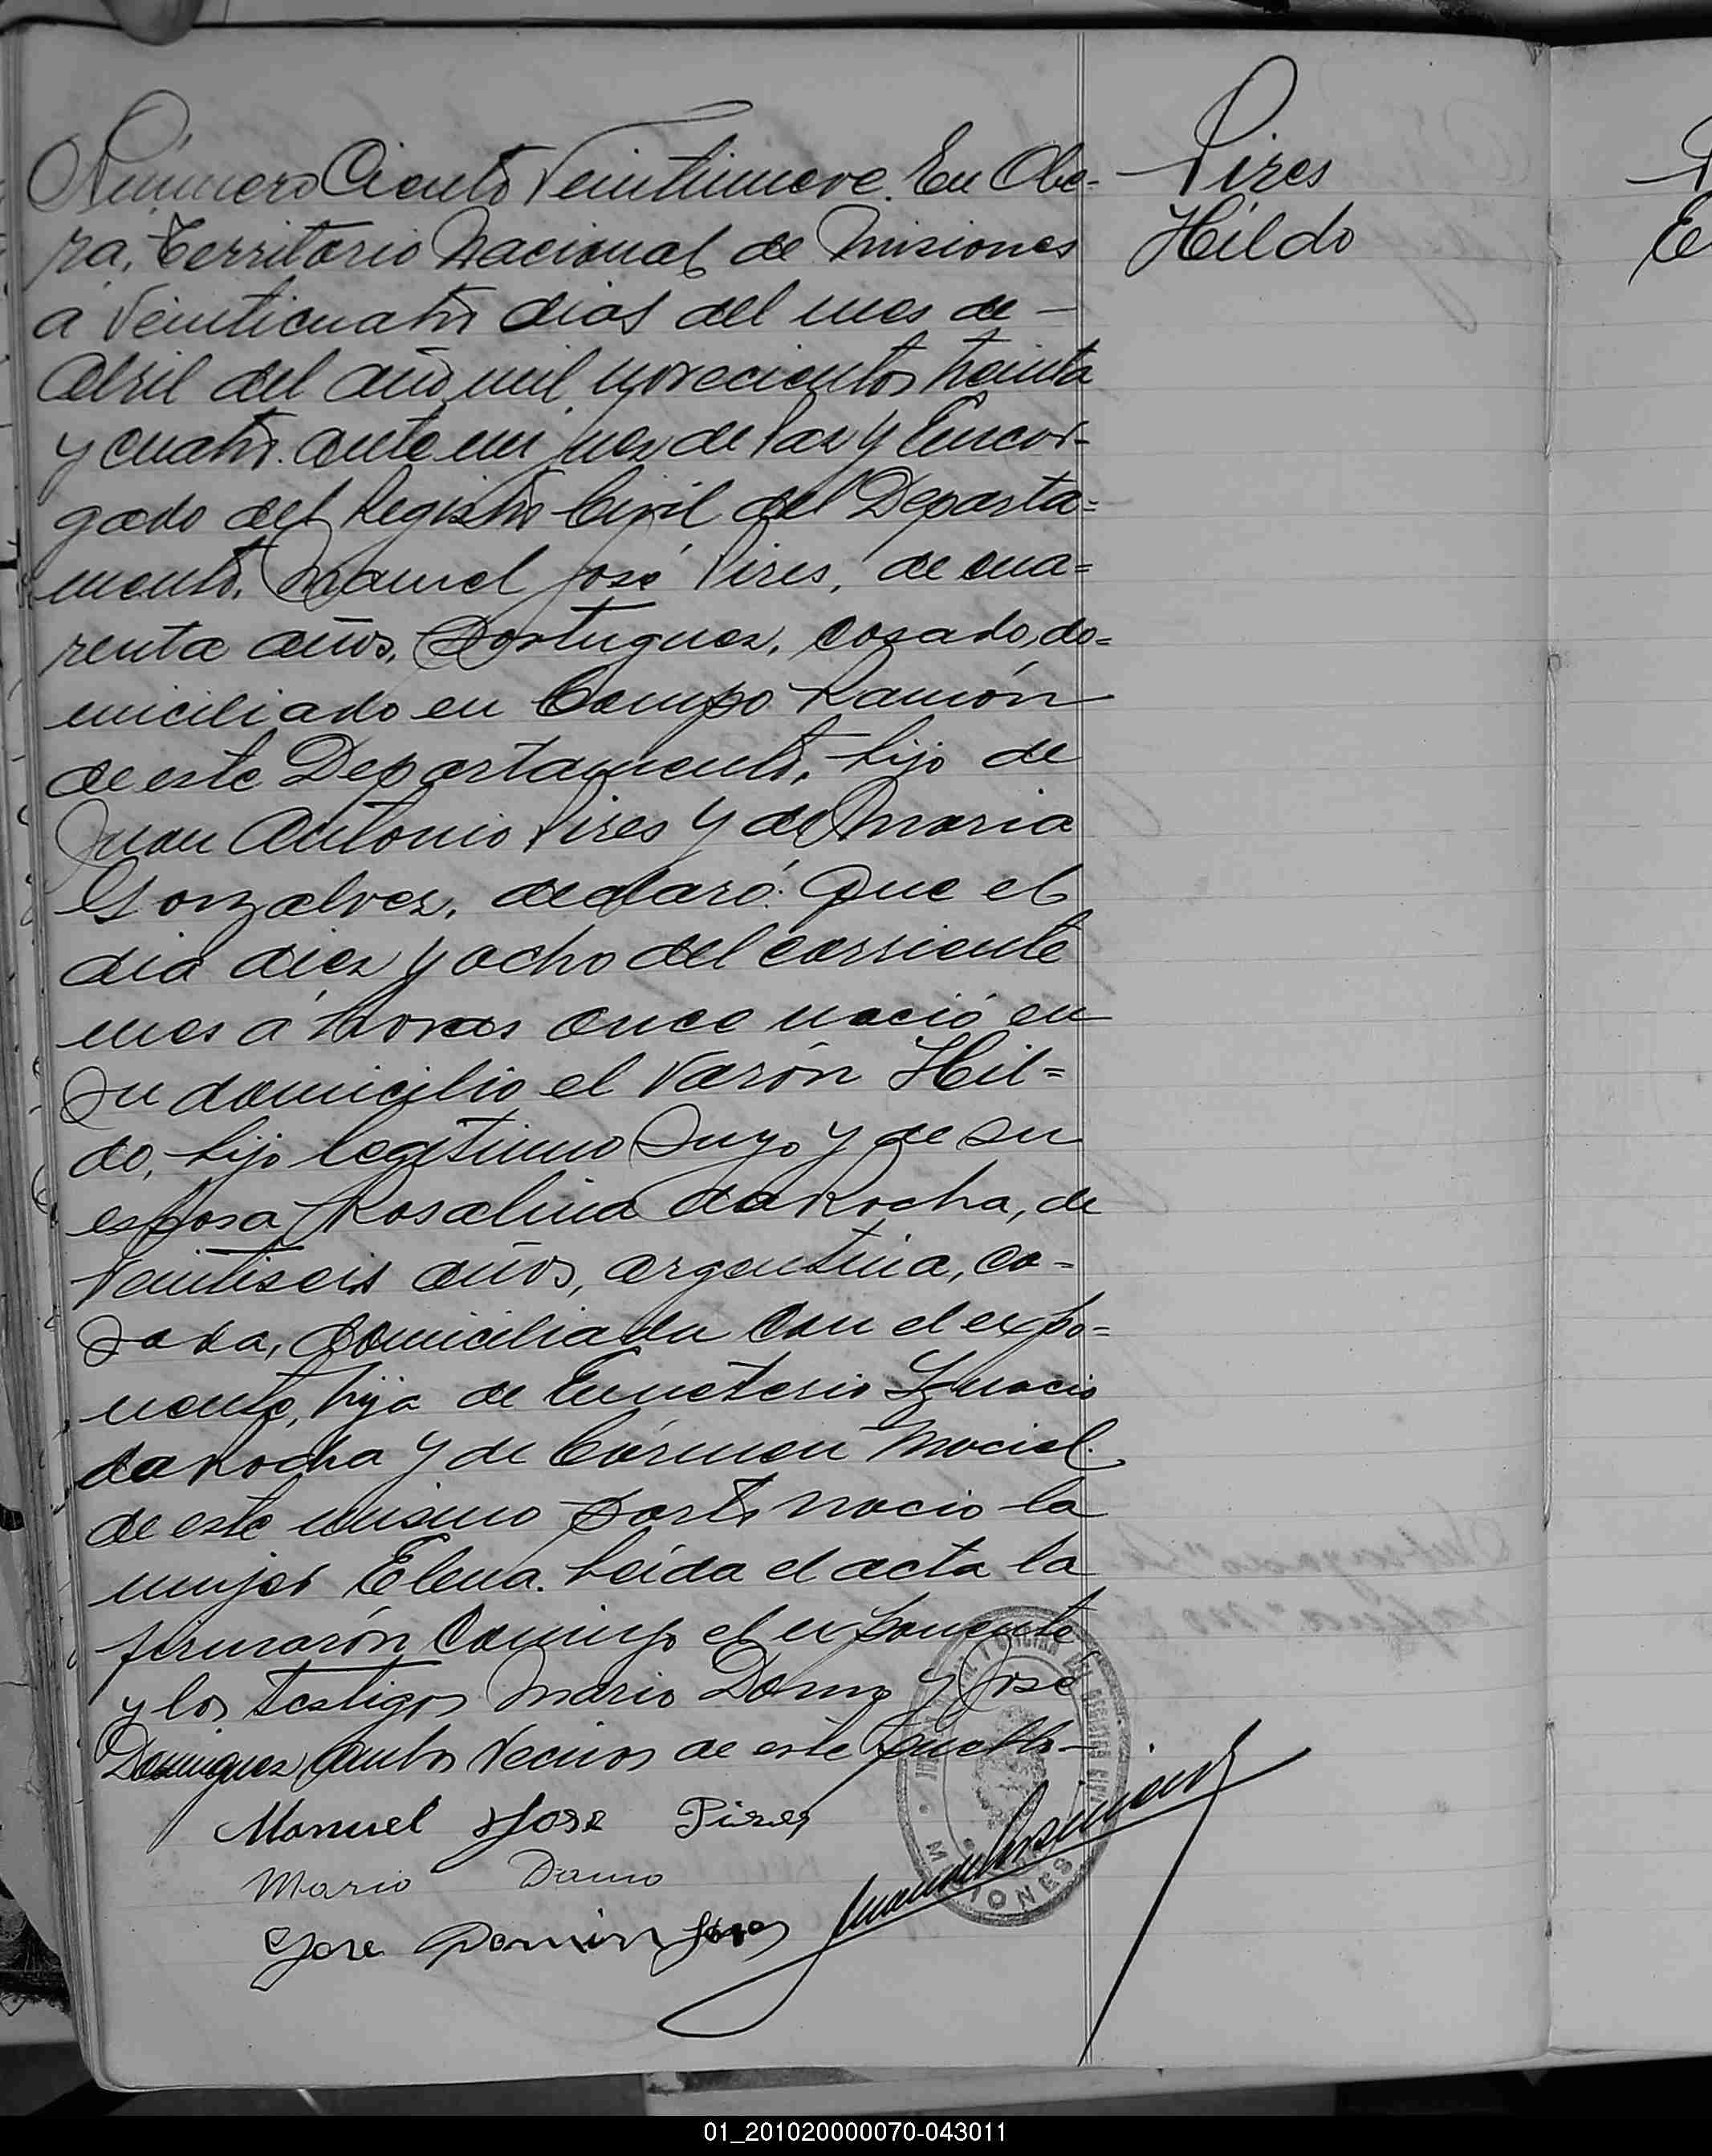 Número Ciento Veintinueve. En Obe-
ra, Territorio Nacional de Misiones
a Veinticuatro dias del mes de -
Abril del año mil novecientos treinta
y cuatro. ante mi Juez de Paz y Encar-
gado del Registro Civil del Departa-
mento. Manuel José Pires, de cua-
renta años, Portuguez, casado, do-
miciliado en Campo Ramón
de este Departamento, hijo de
Juan Antonio Pires y de Maria
Gonzalvez, declaró: Que el
dia diez y ocho del corriente
mes á horas once nació en
su domicilio el Varón Hil-
do, hijo legitimo suyo y de su
esposa Rosalina da Rocha, de
Veintiseis años, argentina, ca-
sada, domiciliada con el expo-
nente, hija de Emeterio Ignacio
da Rocha y de Cármen Maciel.
de este mismo parto nacio la
mujer Elena. Leida el acta la
firmarón Conmigo el exponente
y los testigos Mario Damo y José
Dominguez ambos Vecinos de este Pueblo-
Manuel Jose Pires
Mario Damo
Jose Dominguez
Pires
Hildo
MISIONES
01_201020000070-043011